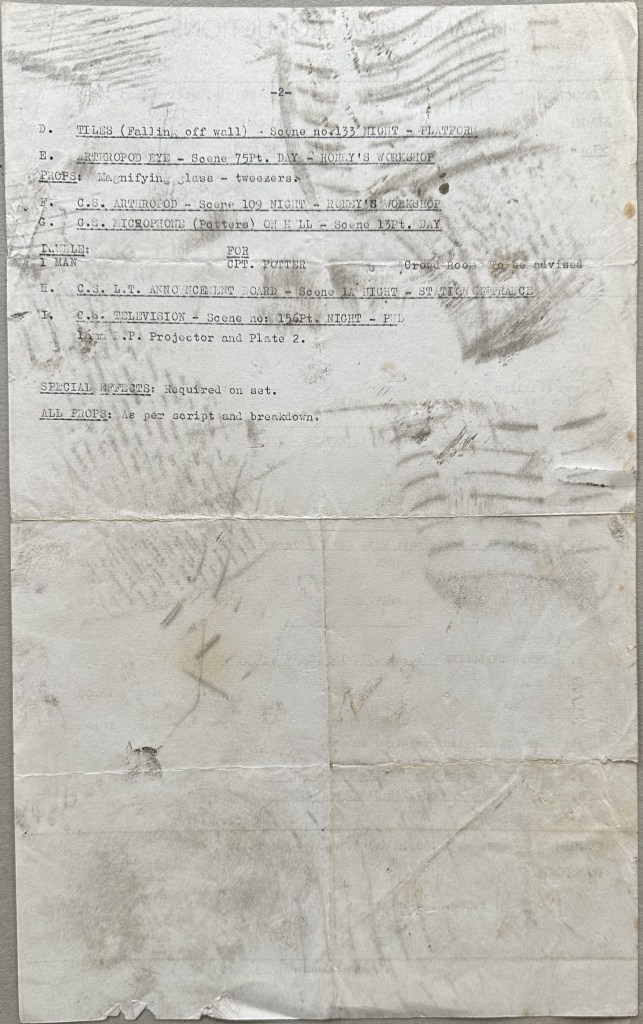 -2-
D. TILES (Falling off wall) - Scene no.133 NIGHT - PLATFORM
E. ARTHROPOD EYE - Scene 75Pt. DAY - RONEY'S WORKSHOP
PROPS: Magnifying glass - tweezers.
F. C.S. ARTHROPOD - Scene 109 NIGHT - RONEY'S WORKSHOP
G. C.S. MICROPHONE (Potters) ON HULL - Scene 13Pt. DAY
DOUBLE: FOR
1 MAN CPT. POTTER Crowd Room To be advised
H. C.S. L.T. ANNOUNCEMENT BOARD - Scene 1A NIGHT - STATION ENTRANCE
I. C.S. TELEVISION - Scene no: 156Pt. NIGHT - PUB
16mm .P. Projector and Plate 2.
SPECIAL EFFECTS: Required on set.
ALL PROPS: As per script and breakdown.